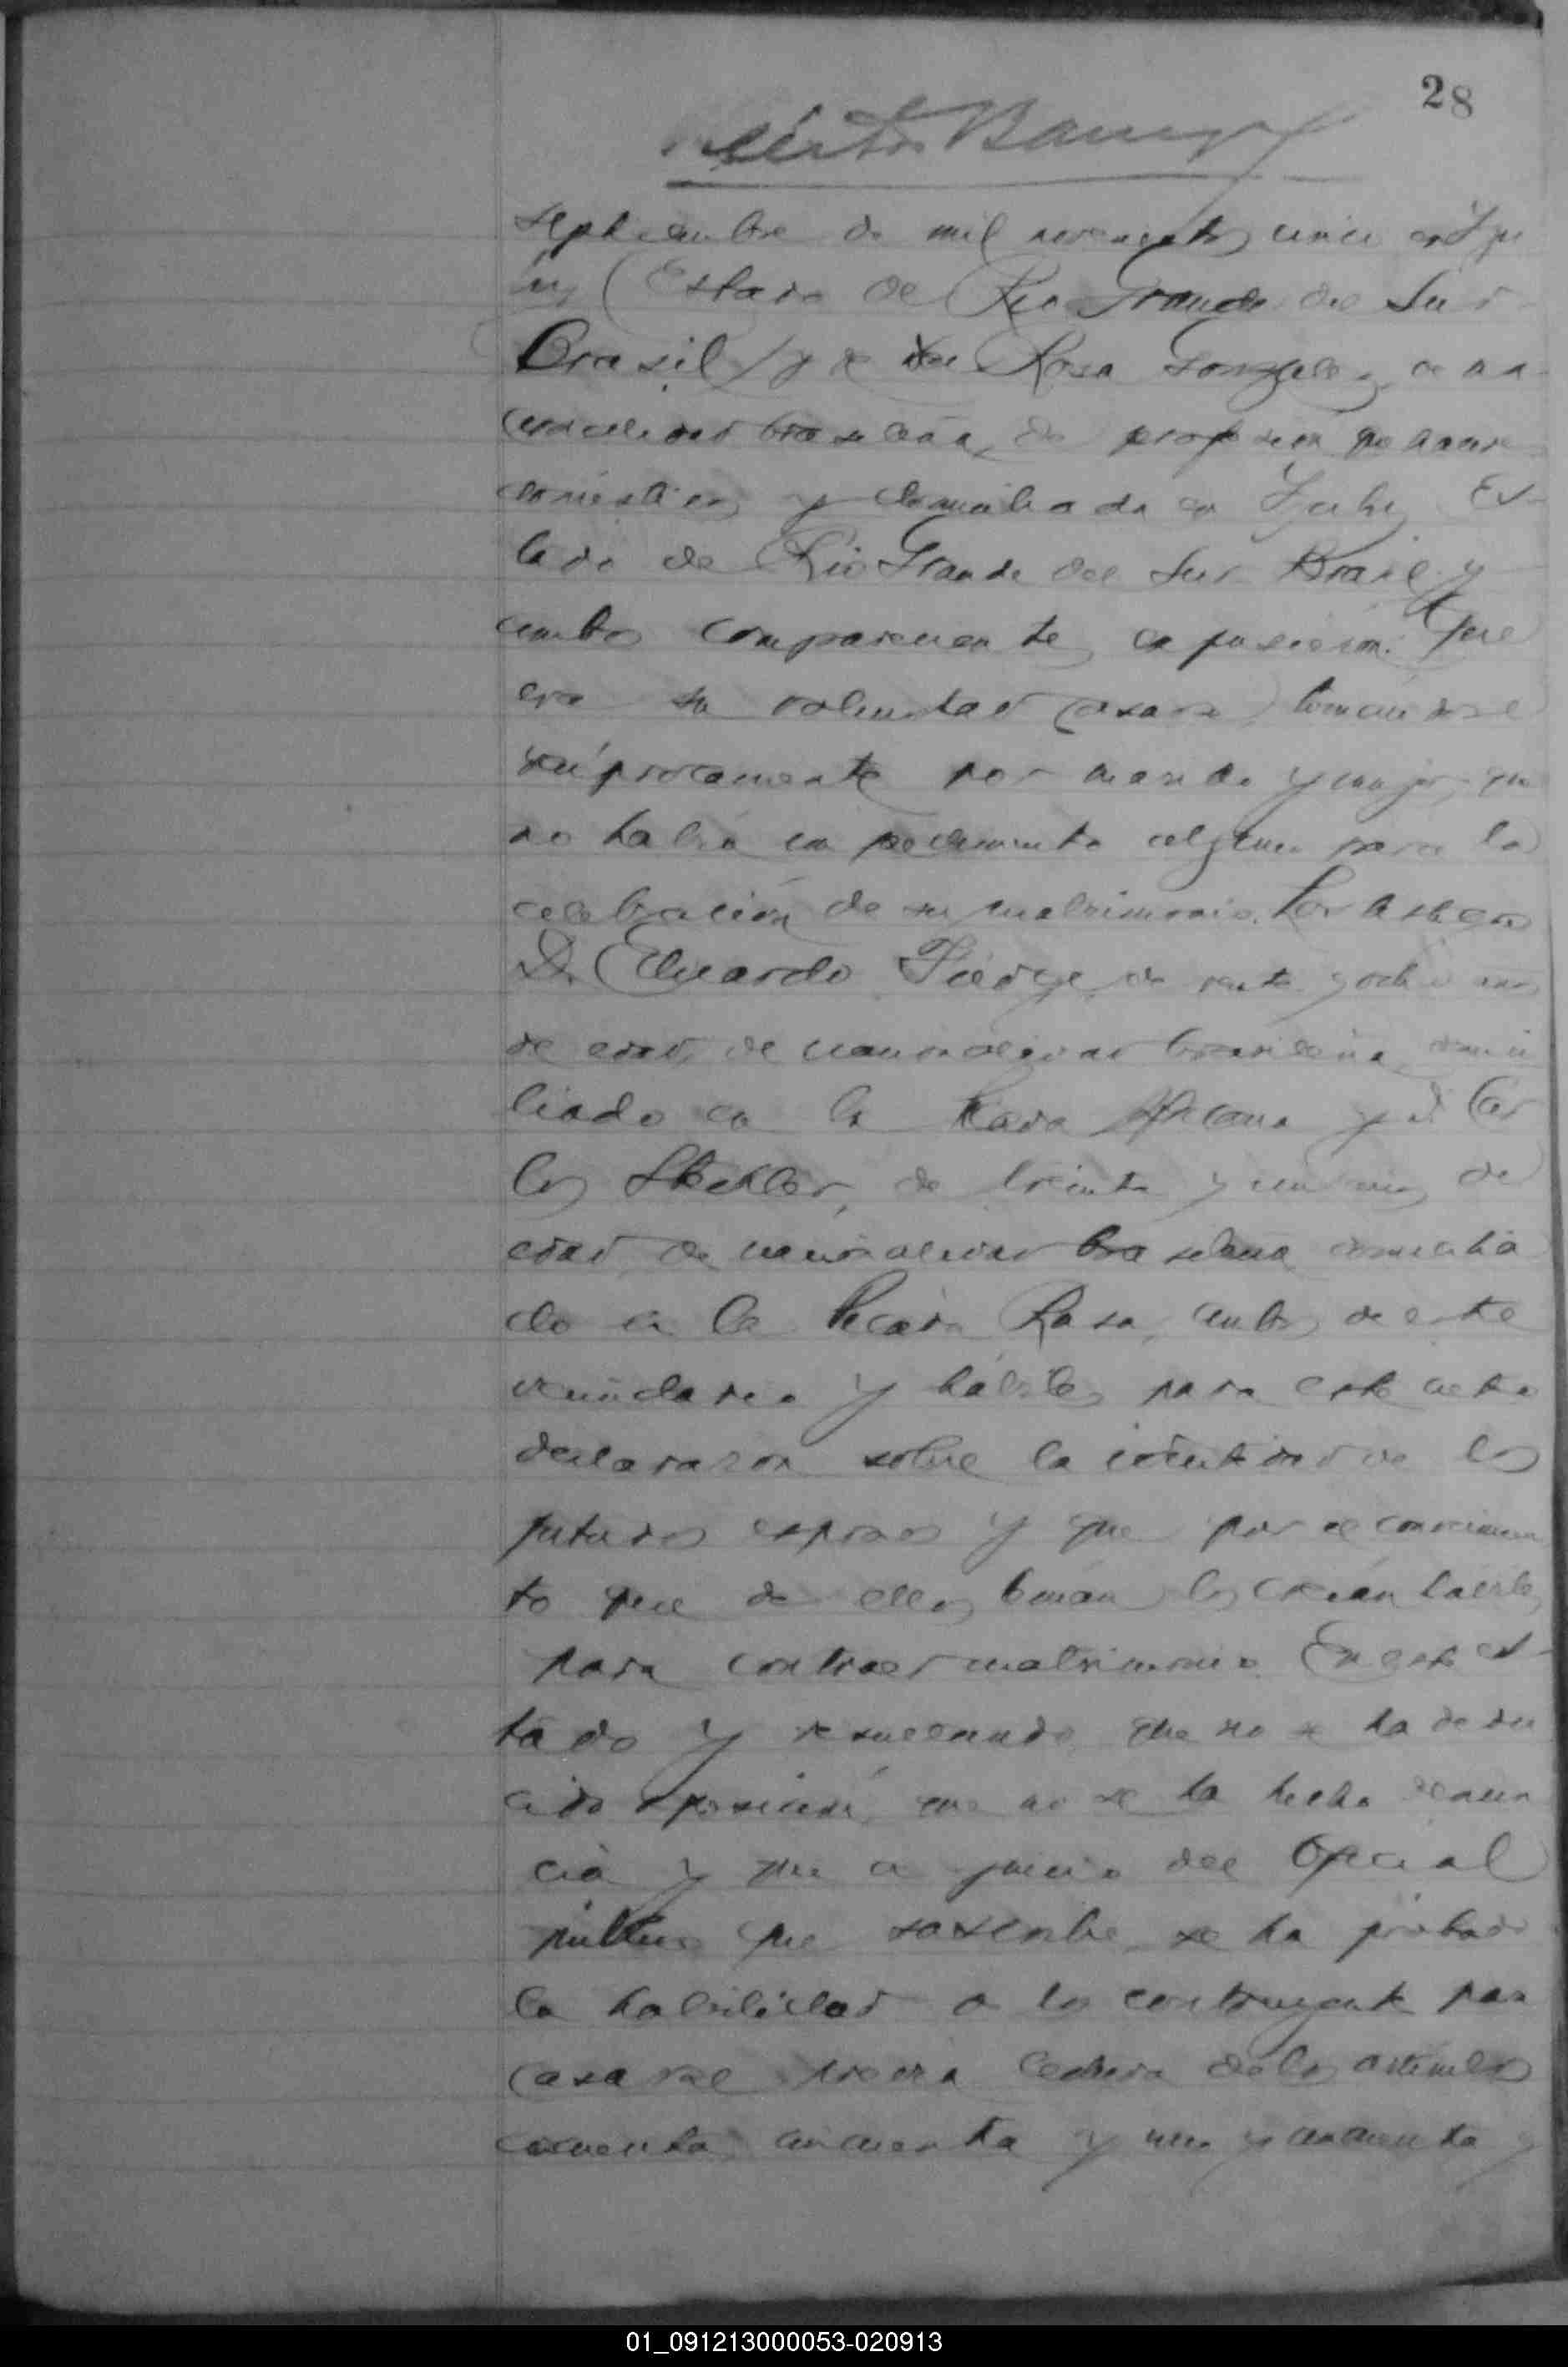 28
septiembre de mil novecientos cinco en Ijui
(Estado de Rio Grande del Sur
Brasil) y de Rosa Gonzalez, de na
cionalidad brasileña, de profesion
domestica y domiciliada en Ijuhy Es
tado de Rio Grande del Sur Brasil y
ambos comparecientes expusieron: Que
era su voluntad casarse tomandose
reciprocamente por marido y mujer, que
no habia impedimento alguno para la
celebración de su matrimonio. Los testigos
D. Eduardo de veinte y ocho años
de edad, de nacionalidad brasileña, domici
liado en la Picada Africana y D. Car
los Stehler, de treinta y un años de
edad, de nacionalidad brasilena domicilia
do en la Picada Rosa, ambos de este
vecindario y hábiles para este acto
declararon sobre la identidad de los
futuros esposos y que por el conocimien
to que de ellos tenian los creian habiles
para contraer matrimonio. En este es
tado y resultando que no se ha dedu
cido oposición, que no se ha hecho denun
cia y que a juicio del Oficial
público que suscribe, se ha probado
la habilidad de los contrayentes para
casarse previa lectura de los articulos
cincuenta, cincuenta y uno y cincuenta y
01_091213000053-020913